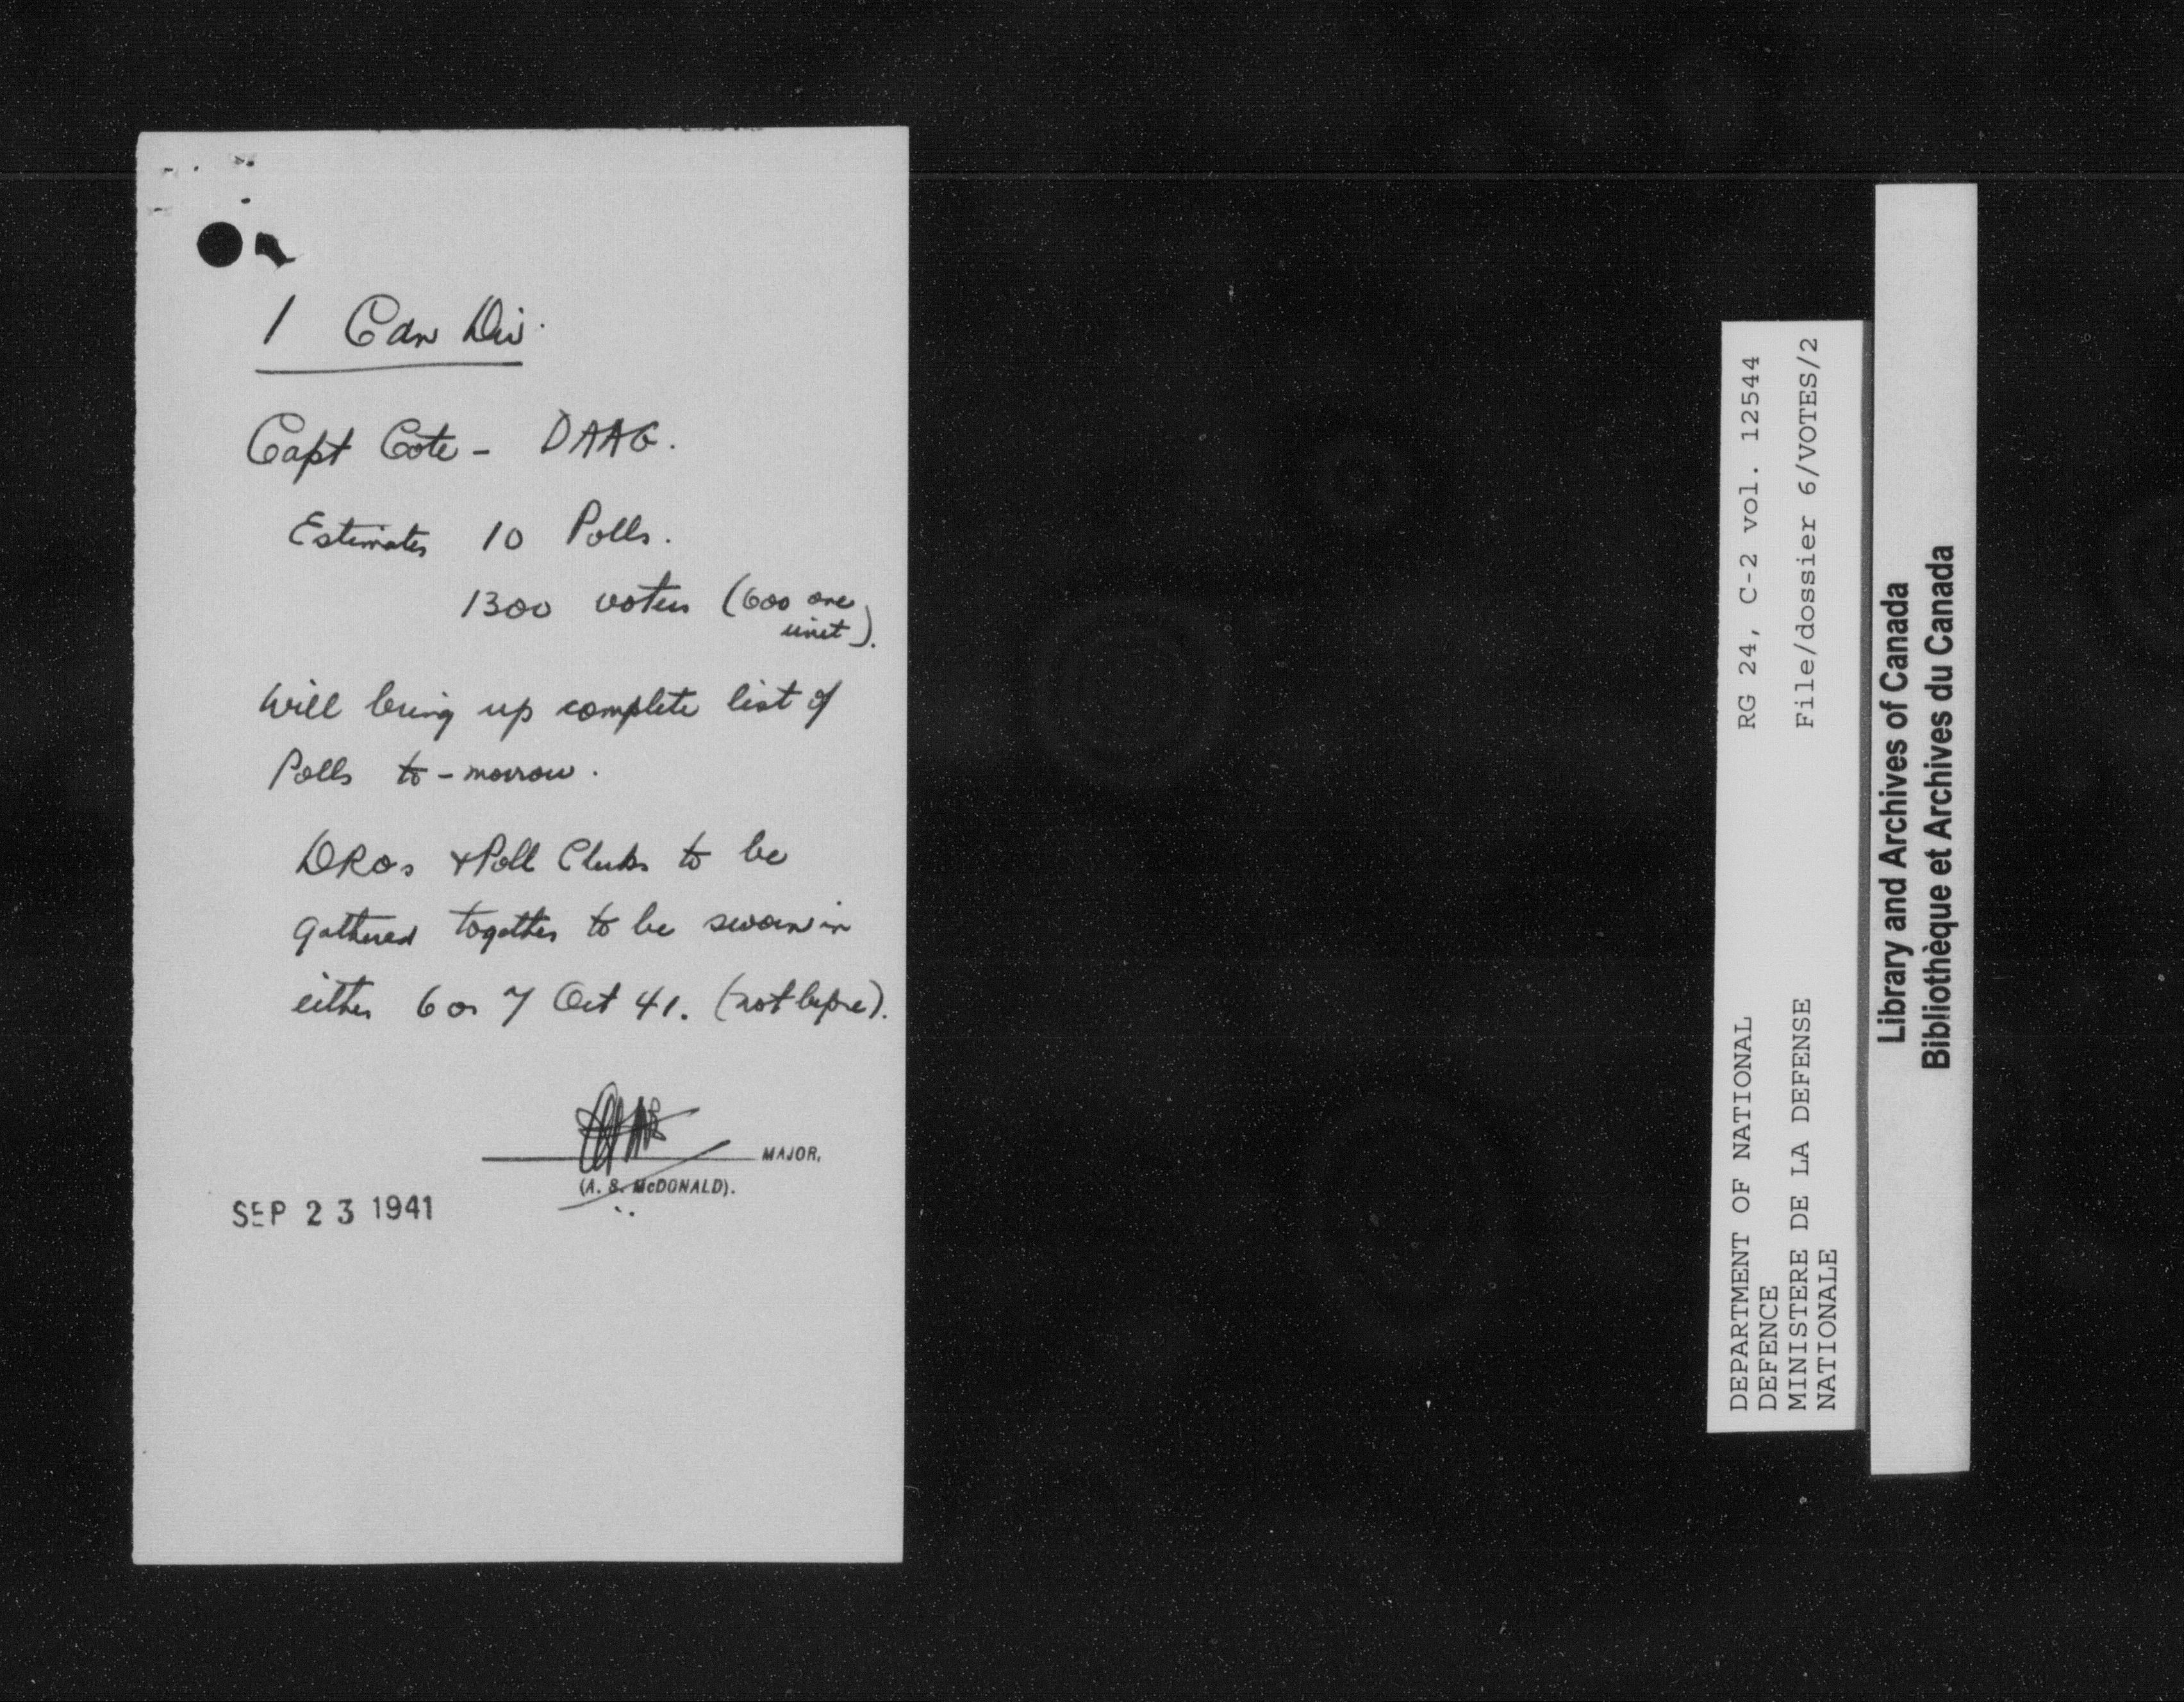 1 Cdn Div.
Capt Cote - DAAG.
Estimates 10 Polls.
1300 voters (600 one
unit).
Will bring up complete list of
Polls to-morrow.
DROs & Poll Clerks to be
gathered together to be sworn in
either 6 or 7 Oct 41. (not before).
MAJOR.
(A. S. McDONALD).
SEP 23 1941
RG 24, C-2 vol. 12544
File/dossier 6/VOTES/2
DEPARTMENT OF NATIONAL
DEFENCE
MINISTERE DE LA DEFENSE
NATIONALE
Library and Archives of Canada
Bibliothèque et Archives du Canada